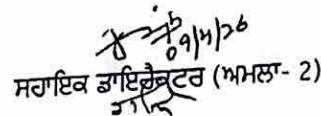 09/4/26
ਸਹਾਇਕ ਡਾਇਰੈਕਟਰ (ਅਮਲਾ- 2)